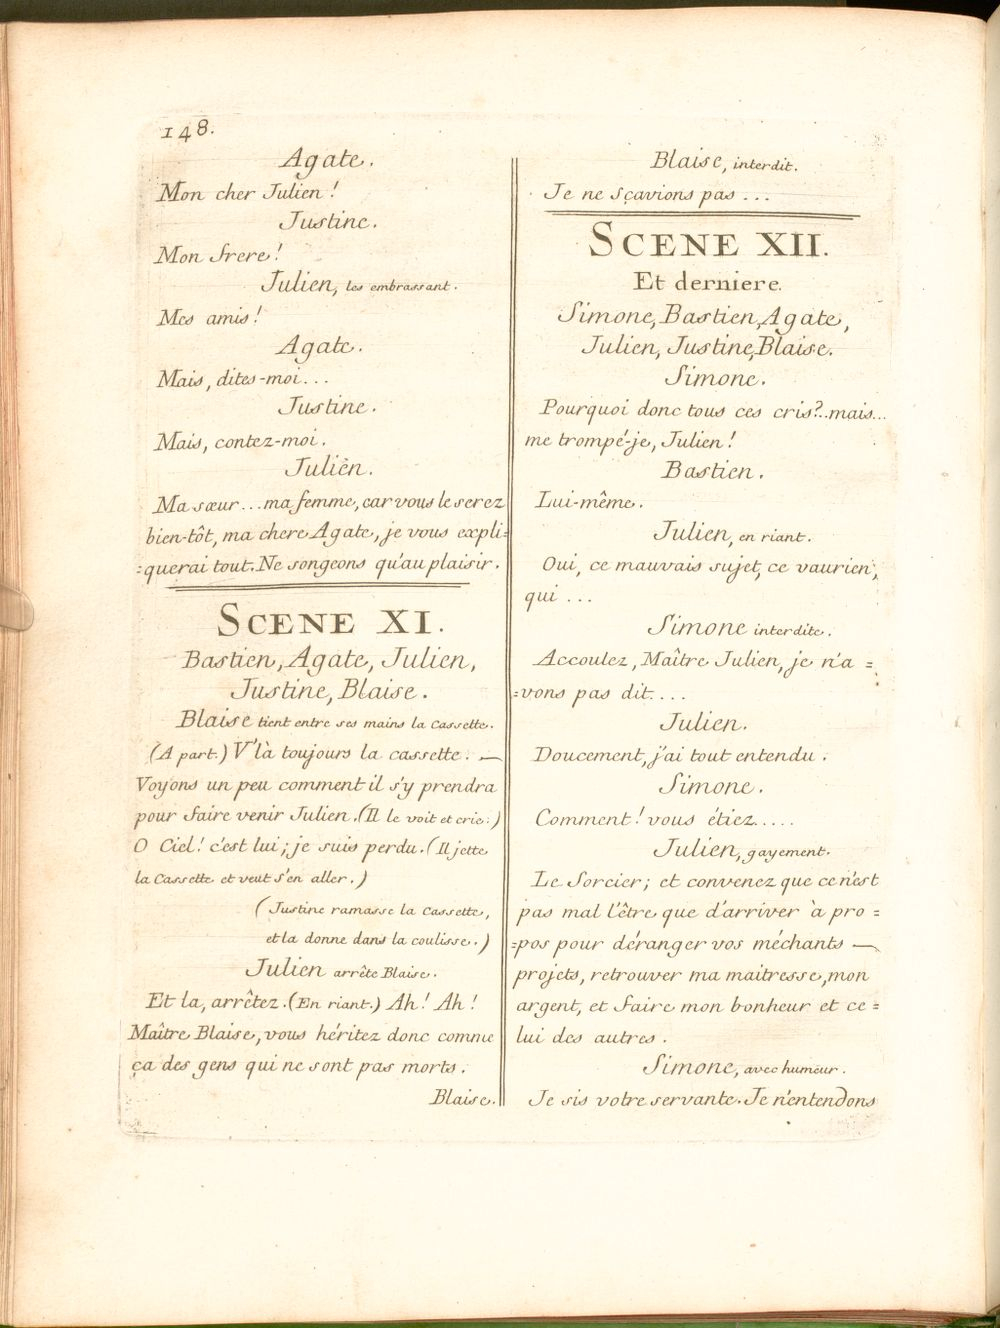 148.
Agate.
Mon cher Julien !
Justine.
Mon frere !
Julien, les embrassant.
Mes amis !
Agate.
Mais, dites-moi...
Justine.
Mais, contez-moi.
Julièn.
Ma sœur... ma femme, car vous le serez
bien-tôt, ma chere Agate, je vous expli=
=querai tout. Ne songeons qu'au plaisir.
SCENE XI.
Bastien, Agate, Julien,
Justine, Blaise.
Blaise tient entre ses mains la Cassette.
(A part.) V'là toujours la cassette. —
Voyons un peu comment il s'y prendra
pour faire venir Julien. (Il le voit et crie.)
O Ciel ! c'est lui ; je suis perdu. (Il jette
la Cassette et veut s'en aller.)
(Justine ramasse la Cassette,
et la donne dans la coulisse.)
Julien arrête Blaise.
Et la, arrêtez. (En riant.) Ah ! Ah !
Maître Blaise, vous héritez donc comme
ça des gens qui ne sont pas morts.
Blaise.
Blaise, interdit.
Je ne sçavions pas ...
SCENE XII.
Et derniere.
Simone, Bastien, Agate,
Julien, Justine, Blaise.
Simone.
Pourquoi donc tous ces cris?..mais...
me trompé-je, Julien !
Bastien.
Lui-même.
Julien, en riant.
Oui, ce mauvais sujet, ce vaurien,
qui ...
Simone interdite.
Accoutez, Maître Julien, je n'a =
=vons pas dit....
Julien.
Doucement, j'ai tout entendu.
Simone.
Comment ! vous étiez.....
Julien, gayement.
Le Sorcier ; et convenez que ce n'est
pas mal l'être que d'arriver à pro =
=pos pour déranger vos méchants —
projets, retrouver ma maitresse, mon
argent, et faire mon bonheur et ce =
lui des autres.
Simone, avec humeur.
Je sis votre servante. Je n'entendons